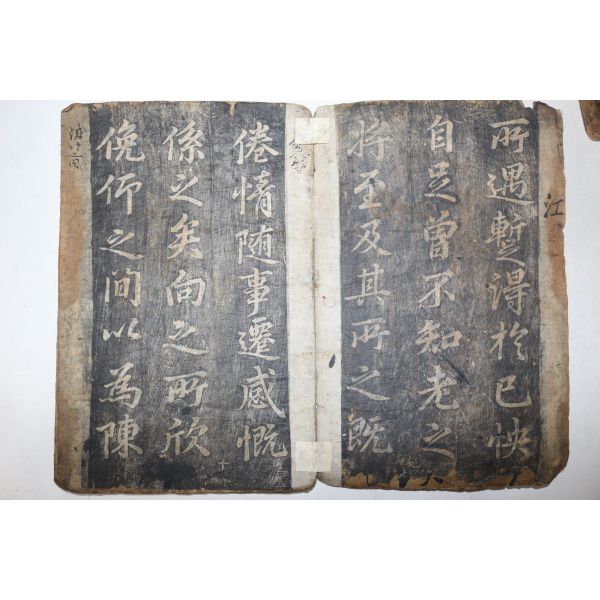 所遇暫得於己怏
自足曾不知老之
將至及其所之既
倦情随事遷感慨
係之矣向之所欣
俛仰之間以為陳
江
九
十